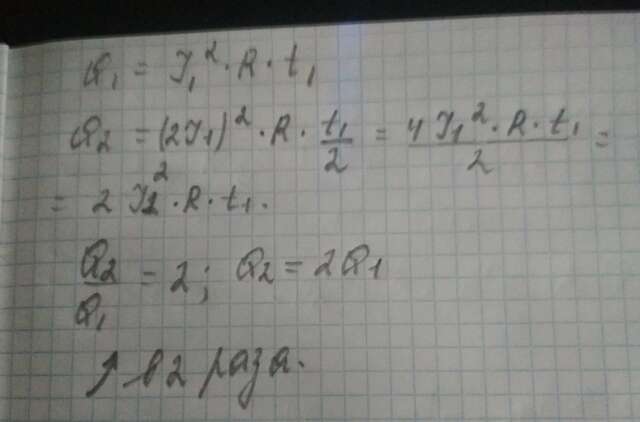 Q₁ = J₁² · R · t₁
Q₂ = (2J₁)² · R · t₁/2 = 4J₁² · R · t₁/2 =
= 2 J₁² · R · t₁.
Q₂/Q₁ = 2; Q₂ = 2Q₁
↑ в 2 раза.